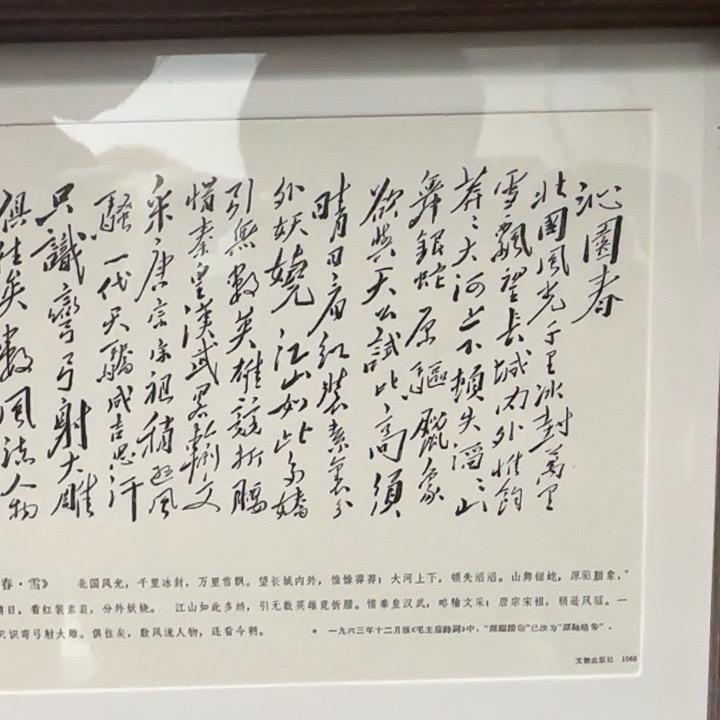 沁園春
北國風光千里冰封萬里
雪飄望長城内外惟餘
莽々大河上下頓失滔々山
舞銀蛇原驅臘象
欲與天公試比高須
晴日看紅裝素裹分
外妖嬈江山如此多嬌
引無數英雄競折腰
惜秦皇漢武畧輸文
采唐宗宋祖稍遜風
騷一代天驕成吉思汗
只識彎弓射大雕
俱往矣數風流人物
春·雪》 北国风光，千里冰封，万里雪飘。望长城内外，惟馀莽莽；大河上下，顿失滔滔。山舞银蛇，原驱腊象，*
晴日，看红装素裹，分外妖娆。 江山如此多娇，引无数英雄竞折腰。惜秦皇汉武，略输文采；唐宗宋祖，稍逊风骚。一
只识弯弓射大雕。俱往矣，数风流人物，还看今朝。 * 一九六三年十二月版《毛主席詩詞》中，“原驅臘象”已改为“原馳蜡象”．
文物出版社